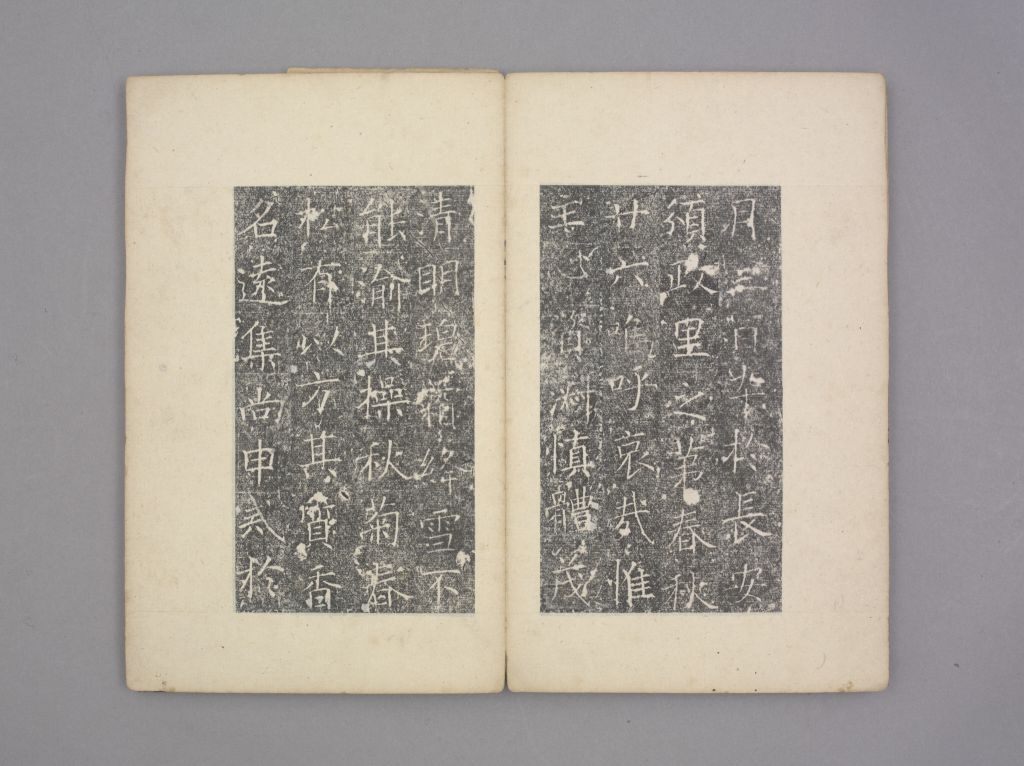 月三日卒於長安
頒政里之第春秋
廿六嗚呼哀哉惟
王心淵慎體茂
清明霜絳雪不
能渝其操秋菊春
松有以方其質香
名遠集尚申於